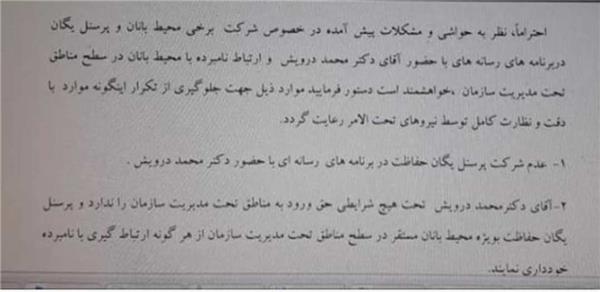 احتراماً، نظر به حواشی و مشکلات پیش آمده در خصوص شرکت برخی محیط بانان و پرسنل یگان
دربرنامه های رسانه های با حضور آقای دکتر محمد درویش و ارتباط نامبرده با محیط بانان در سطح مناطق
تحت مدیریت سازمان ،خواهشمند است دستور فرمایید موارد ذیل جهت جلوگیری از تکرار اینگونه موارد با
دقت و نظارت کامل توسط نیروهای تحت الامر رعایت گردد.
۱- عدم شرکت پرسنل یگان حفاظت در برنامه های رسانه ای با حضور دکتر محمد درویش .
۲-آقای دکترمحمد درویش تحت هیچ شرایطی حق ورود به مناطق تحت مدیریت سازمان را ندارد و پرسنل
یگان حفاظت بویژه محیط بانان مستقر در سطح مناطق تحت مدیریت سازمان از هر گونه ارتباط گیری با نامبرده
خودداری نمایند.